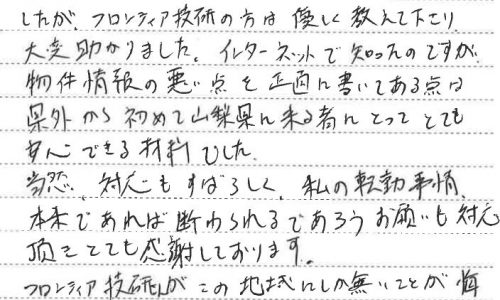 したが、フロンティア技研の方は優しく教えて下さり
大変助かりました。インターネットで知ったのですが、
物件情報の悪い点を正直に書いてある点は
県外から初めて山梨県に来る者にとってとても
安心できる材料でした。
当然、対応もすばらしく、私の転勤事情、
本来であれば断わられるであろうお願いも対応
頂きとても感謝しております。
フロンティア技研がこの地域にしか無いことが